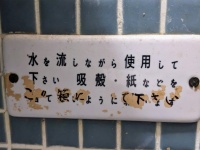 水を流しながら使用して
下さい 吸殻・紙などを
て 様にようにして下さい